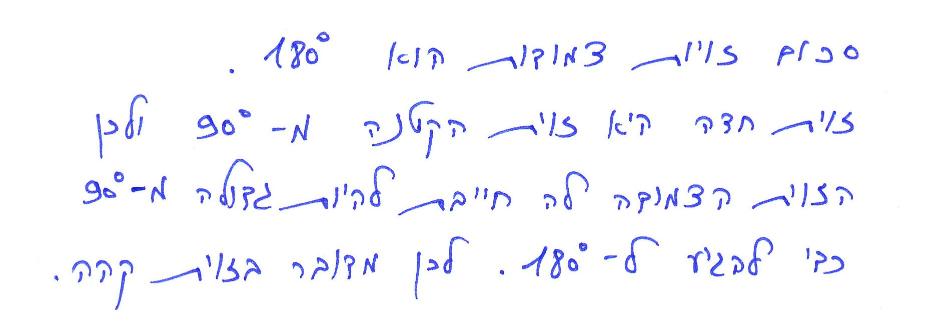 סכום זוויות צמודות הוא 180°.
זוית חדה היא זוית הקטנה מ-90° ולכן
הזוית הצמודה לה חייבת להיות גדולה מ-90°
כדי להגיע ל-180°. לכן מדובר בזוית קהה.